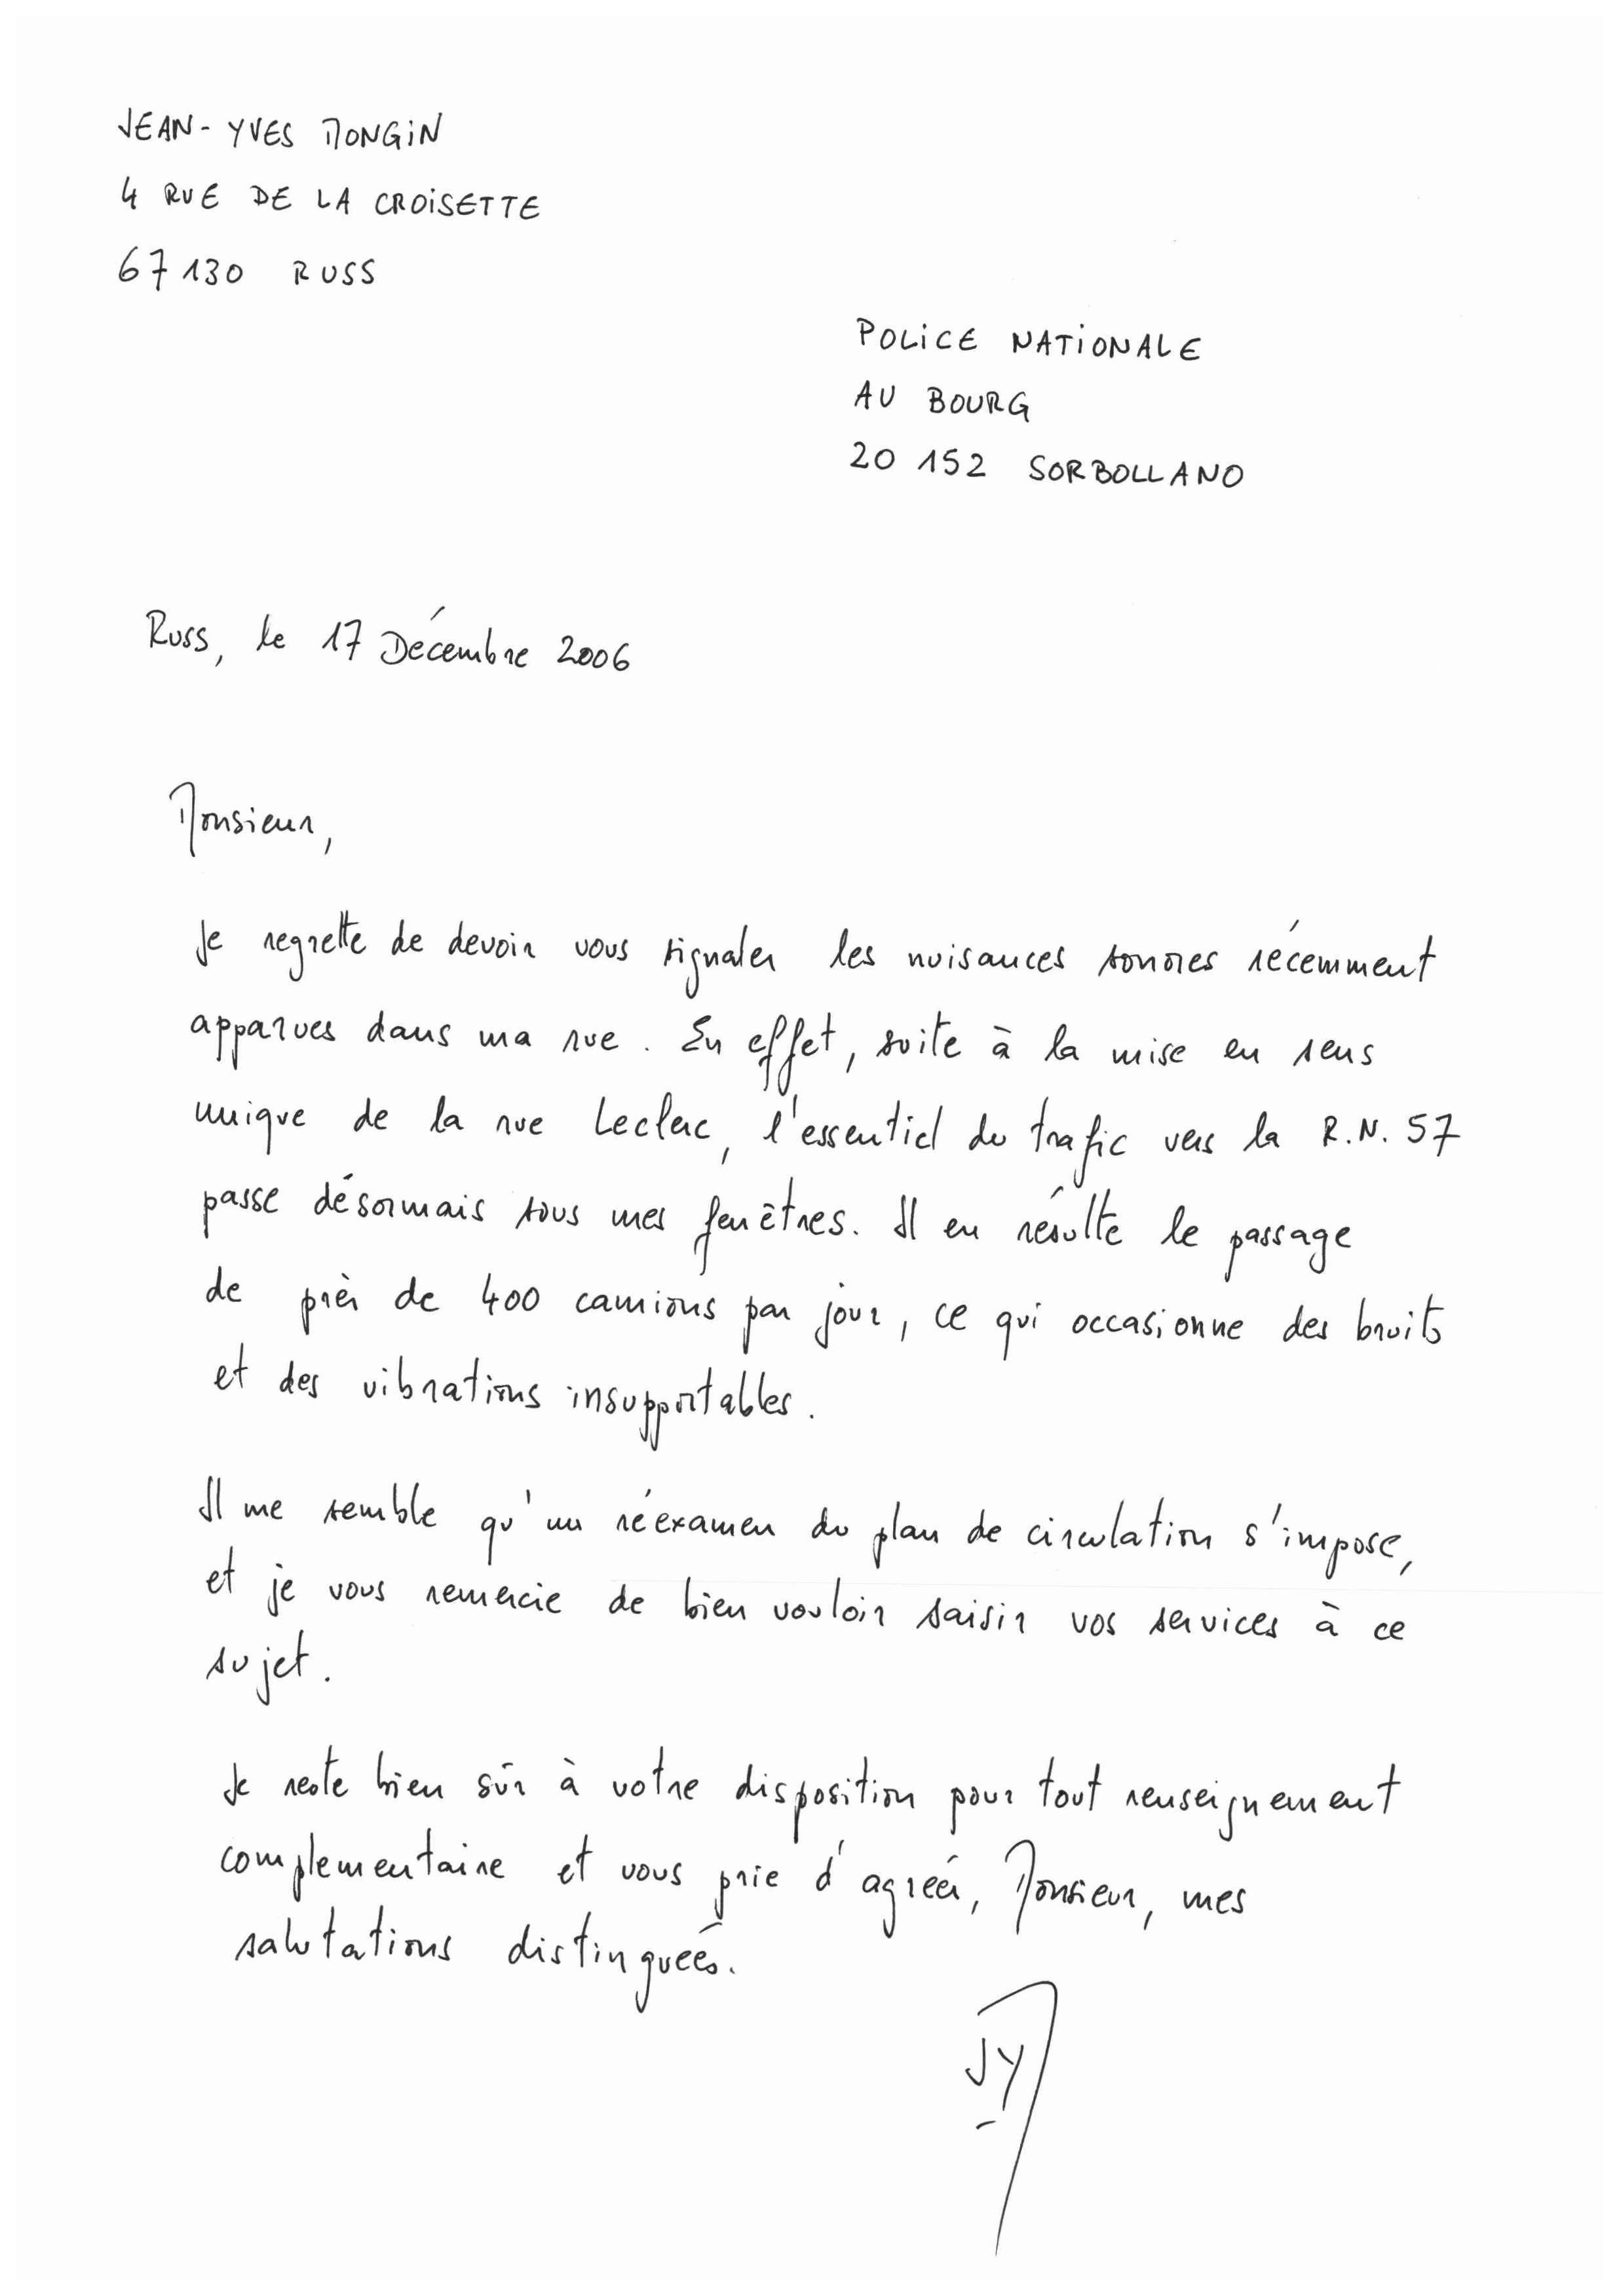 JEAN-YVES MONGIN
4 RUE DE LA CROISETTE
67130 RUSS
POLICE NATIONALE
AU BOURG
20 152 SORBOLLANO
Russ, le 17 Décembre 2006
Monsieur,
Je regrette de devoir vous signaler les nuisances sonores récemment
apparues dans ma rue. En effet, suite à la mise en sens
unique de la rue Leclerc, l'essentiel du trafic vers la R.N. 57
passe désormais sous mes fenêtres. Il en résulte le passage
de près de 400 camions par jour, ce qui occasionne des bruits
et des vibrations insupportables.
Il me semble qu'un réexamen du plan de circulation s'impose,
et je vous remercie de bien vouloir saisir vos services à ce
sujet.
Je reste bien sûr à votre disposition pour tout renseignement
complementaire et vous prie d'agréér, Monsieur, mes
salutations distinguées.
JY